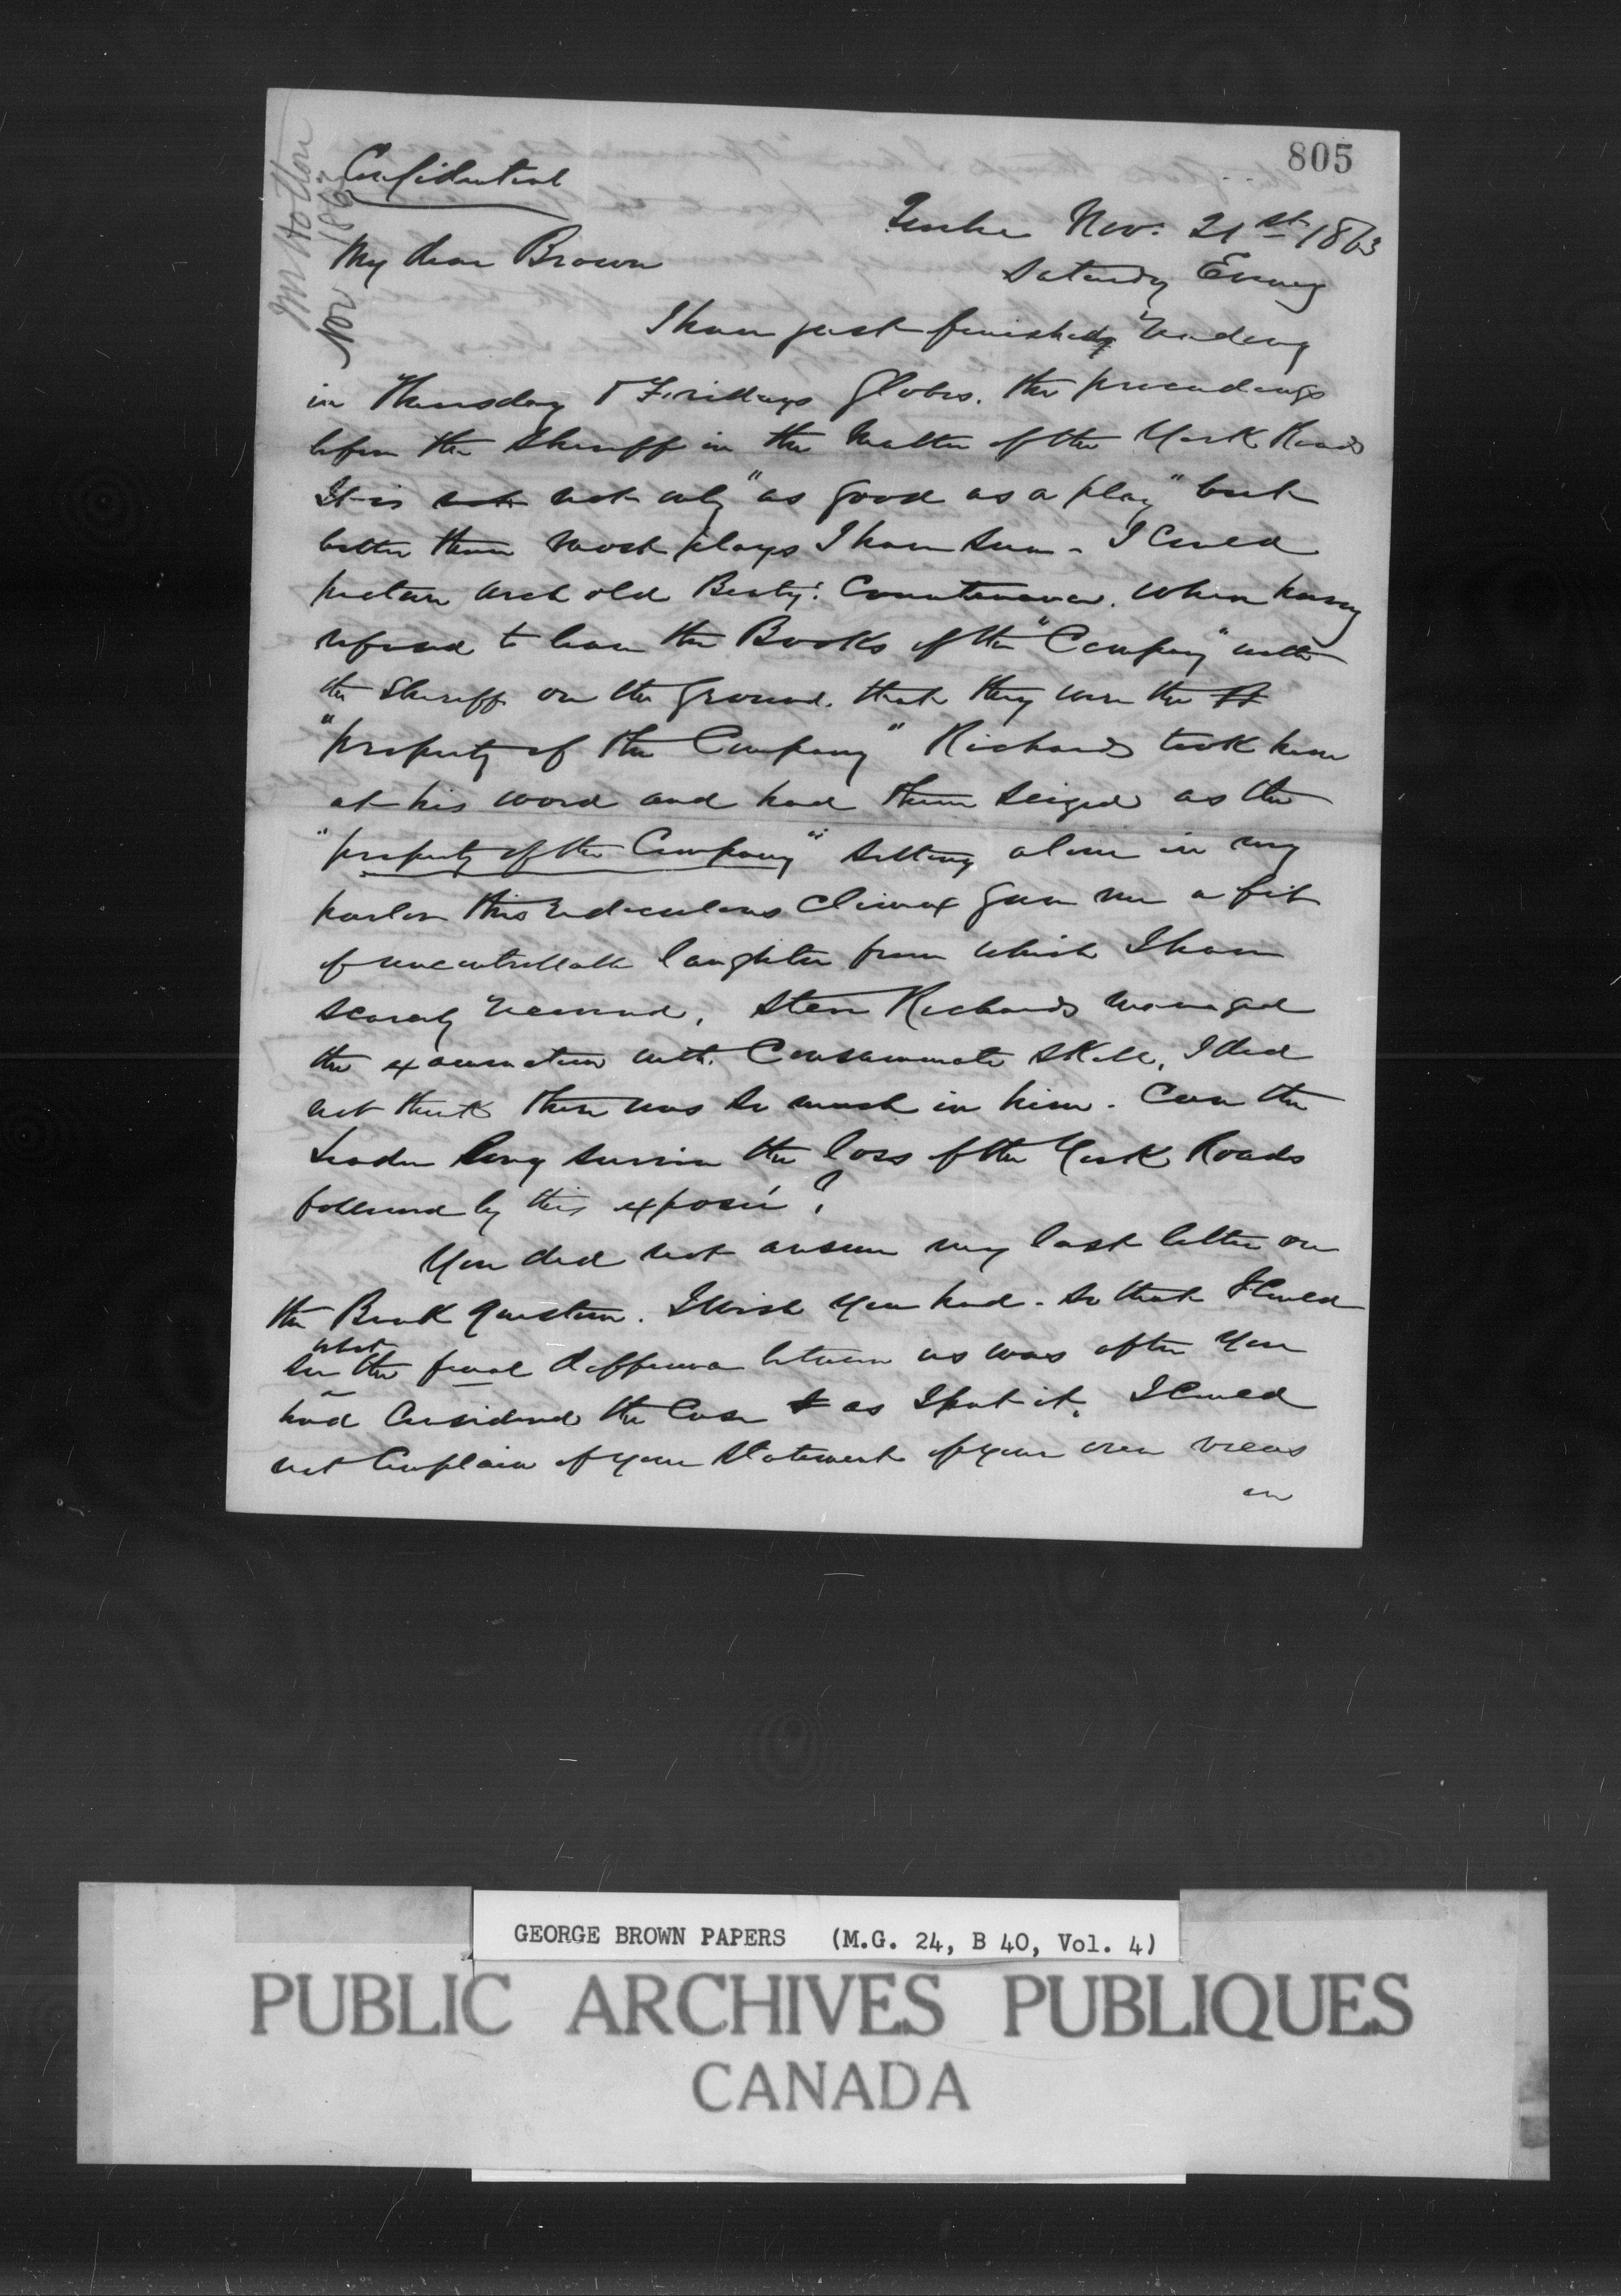 805
Mr Holton
Nov 1863
Confidential
Quebec Nov. 21st 1863
Saturday Evening
My dear Brown
I have just finished reading
in Thursday & Fridays Globes. the proceedings
before the Sheriff in the matter of the York Roads
It is not only "as good as a play" but
better than most plays I have seen - I could
picture old Beaty's Countenance. When having
refused to leave the Books of the "Company" with
the Sheriff on the ground. that they were the
"property of the Company" Richards took him
at his word and had them seized as the
"property of the Company" Sitting alone in my
parlor this rediculous climax gave me a fit
of uncontrollable laughter from which I have
scarcely recovered. Steve Richards managed
the examination with Consummate skill, I did
not think there was so much in him. Can the
Leader long survive the loss of the York Roads
followed by this exposé?
You did not answer my last letter on
the Bank question. I wish you had - so that I could
see what the final difference between us was after you
had considered the Case as I put it. I could
not Complain of your statement of your own views
on
GEORGE BROWN PAPERS (M.G. 24, B 40, Vol. 4)
PUBLIC ARCHIVES PUBLIQUES
CANADA